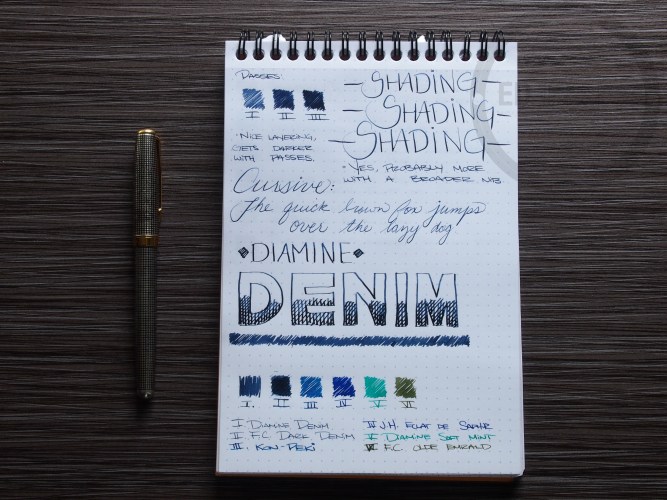 PASSES:
I II III
• NICE LAYERING,
GETS DARKER
WITH PASSES.
– SHADING –
– SHADING –
– SHADING –
• YES, PROBABLY MORE
WITH A BROADER NIB
Cursive:
The quick brown fox jumps
over the lazy dog
◆ DIAMINE ◆
DENIM
I. II III IV V VI
I DIAMINE DENIM
II F.C. DARK DENIM
III. KON-PEKI
IV J.H. ECLAT DE SAPHIR
V DIAMINE SOFT MINT
VI F.C. OLDE EMRALD